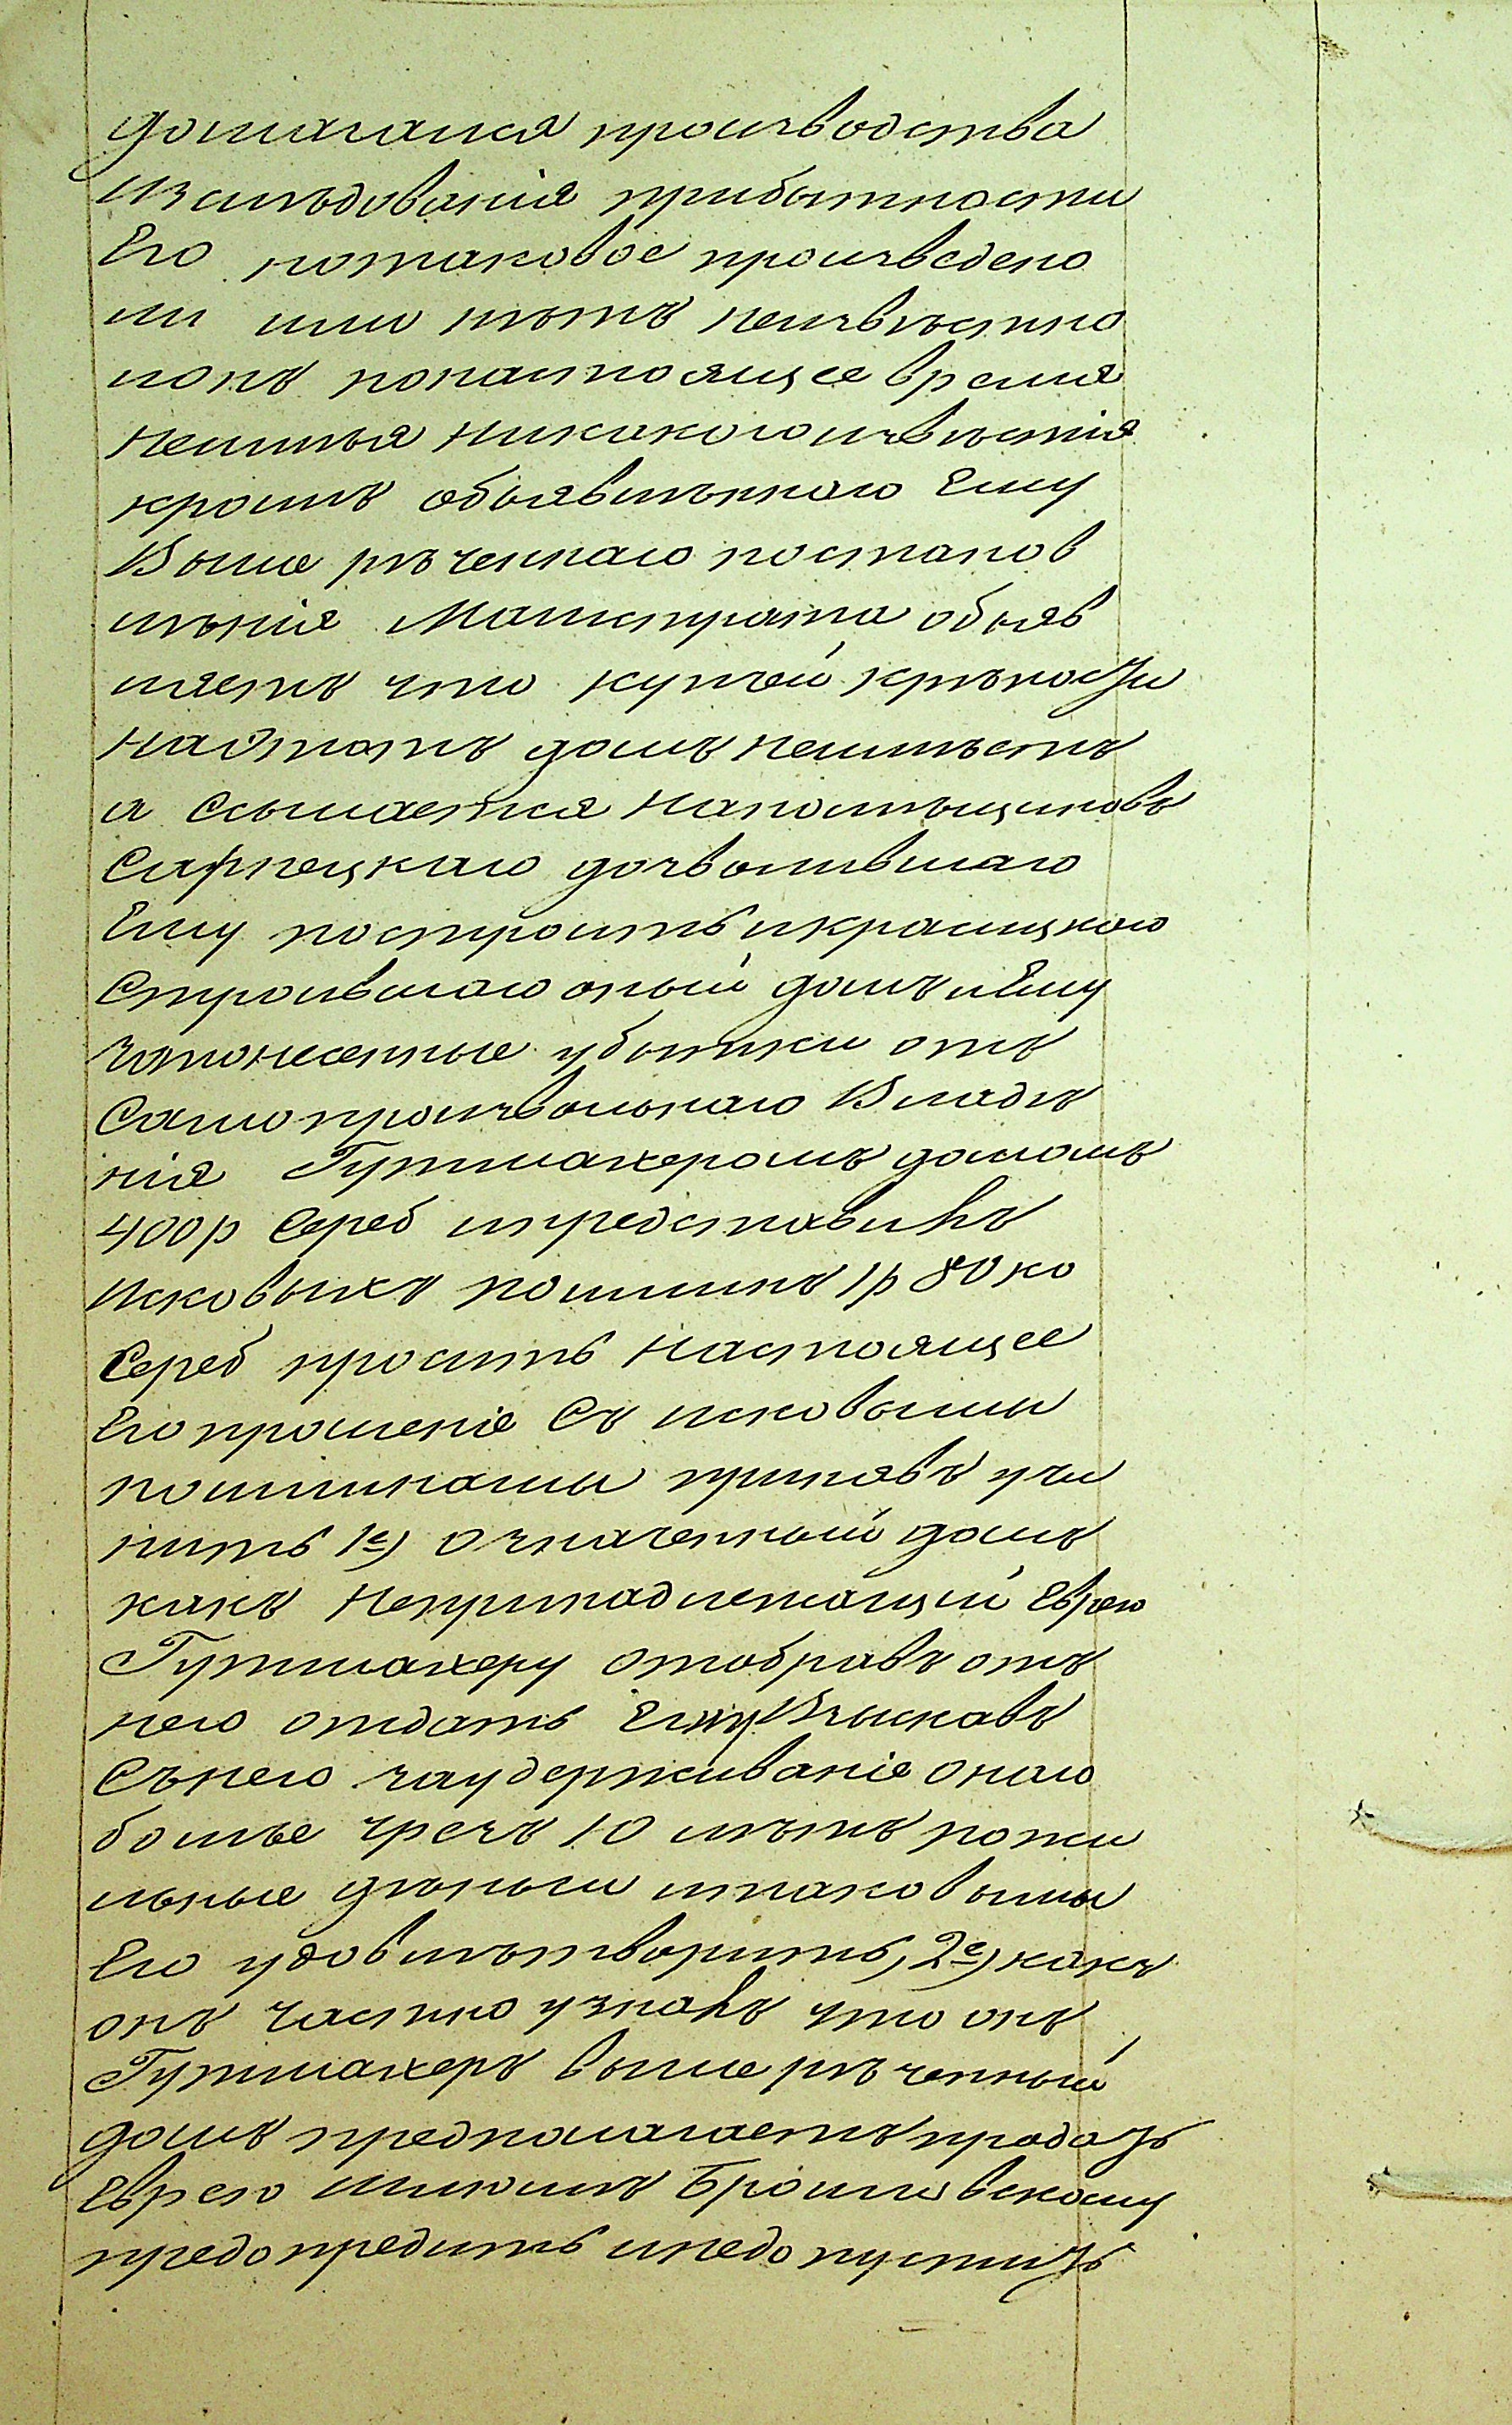 домагался производства
изслѣдованія прибытности
Его нотаковое произведено
ли или нѣтъ неизвѣстно
нонъ понастоящее время
неимѣя никакого извѣстія
кромѣ объявлѣннаго Ему
Выше рѣченнаго постанов
лѣнія Магистрата объяв
ляетъ что купчей крѣпости
наэтотъ домъ неимѣетъ
а Ссылается напомѣщиковъ
Сарнецкаго дозволившаго
Ему построить икрасицкого
Строившаго оный домъ иЕму
запонесенные убытки отъ
Самопроизвольнаго Владѣ
нія Гутмахеромъ домомъ
400р Сереб ипредставивъ
Исковыхъ пошлинъ 1р 80 ко
Сереб проситъ настоящее
Его прошеніе Съ исковыми
пошлинами принявъ учи
нить 1е) означенный домъ
какъ непринадлежащій Еврею
Гутмахеру отобравъ отъ
него отдать Ему Взыскавъ
Сънего заудерживаніе онаго
болѣе чрезъ 10 лѣтъ пожи
лыные дѣньги итаковыми
Его удовлѣтворить, 2е) какъ
онъ частно узналъ что онъ
Гутмахеръ выше рѣченный
домъ предполагаетъ продать
Еврею Шліомѣ Броиловскому
предопредить инедопустить